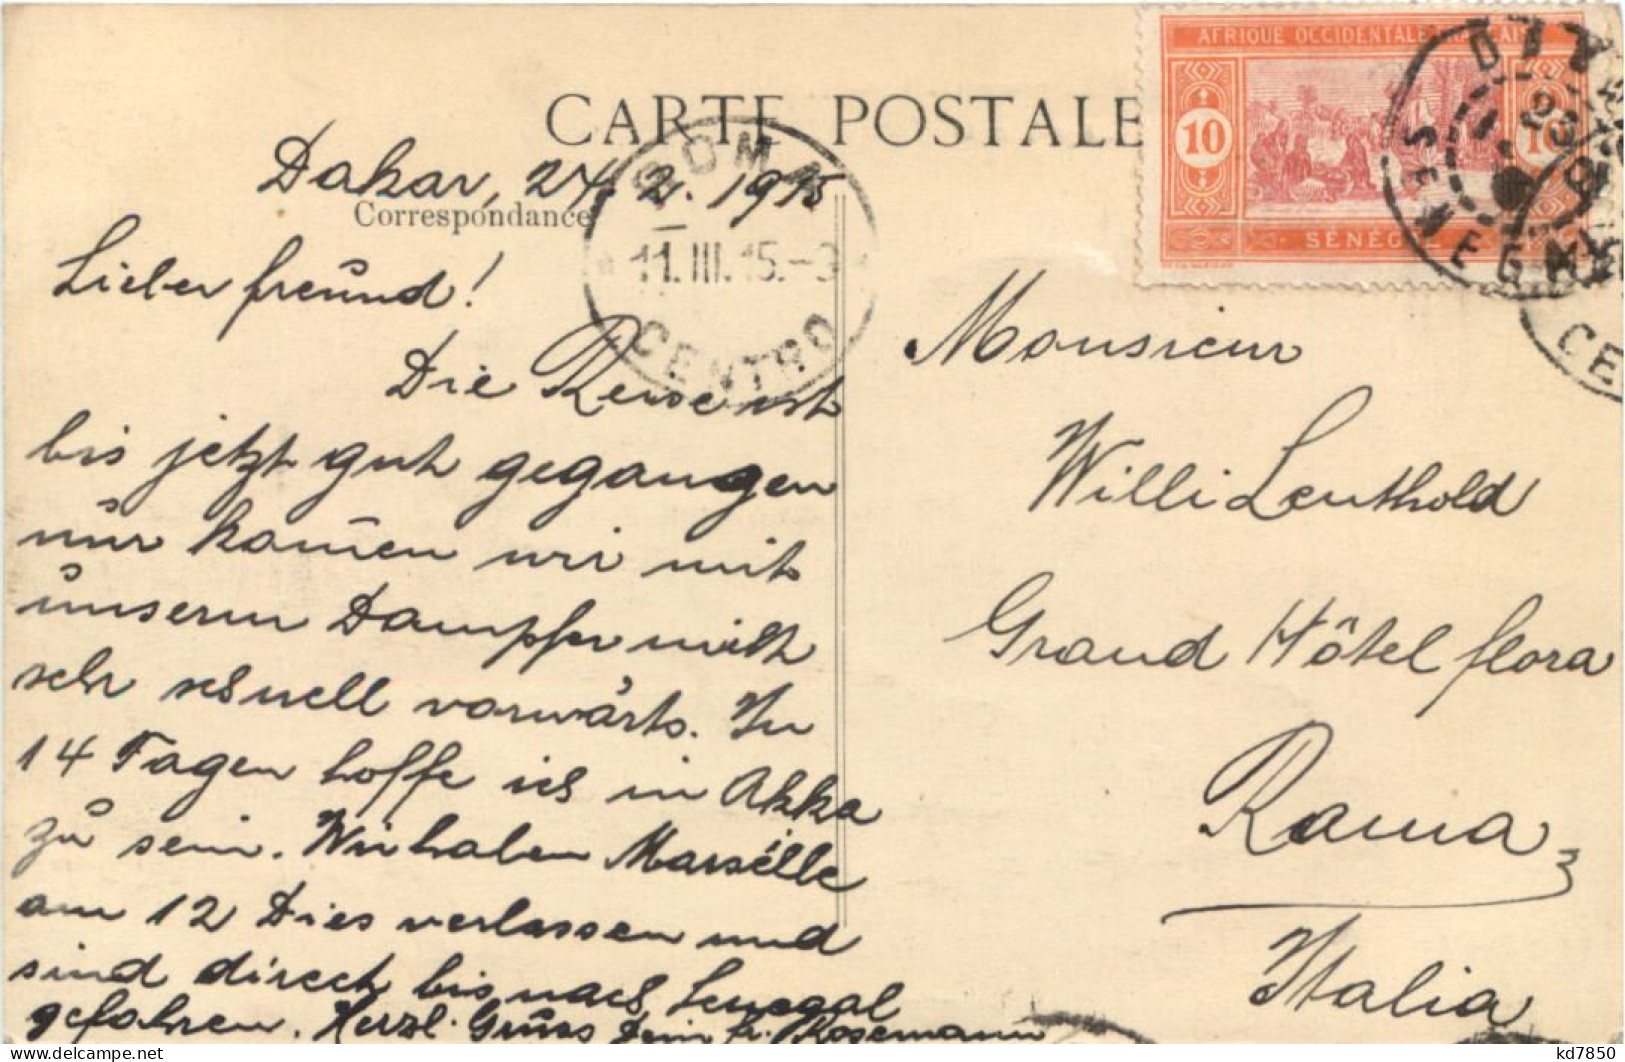 CARTE POSTALE
Correspondance
AFRIQUE OCCIDENTALE FRANÇAISE
10
10
SÉNÉGAL
ROMA
11.III.15.-9
CENTRO
SENEGAL
CE
Dakar, 24. 2. 1915
Lieber freund!
Die Reise ist
bis jetzt gut gegangen
nur kom̄en wir mit
unserm Dampfer nicht
sehr schnell vorwärts. In
14 Tagen hoffe ich in Akka
zu sein. Wir haben Marseille
am 12 Dies verlassen und
sind direct bis nach Senegal
gefahren. Herzl. Gruss Dein Rosemann
Monsieur
Willi Leuthold
Grand Hôtel flora
Roma
Italia
kd7850